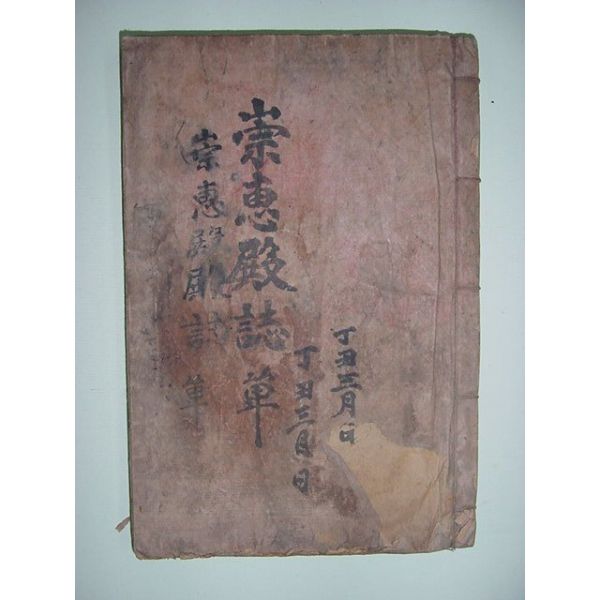 丁丑三月日
丁丑三月日
崇惠殿誌草
崇惠殿殿誌草